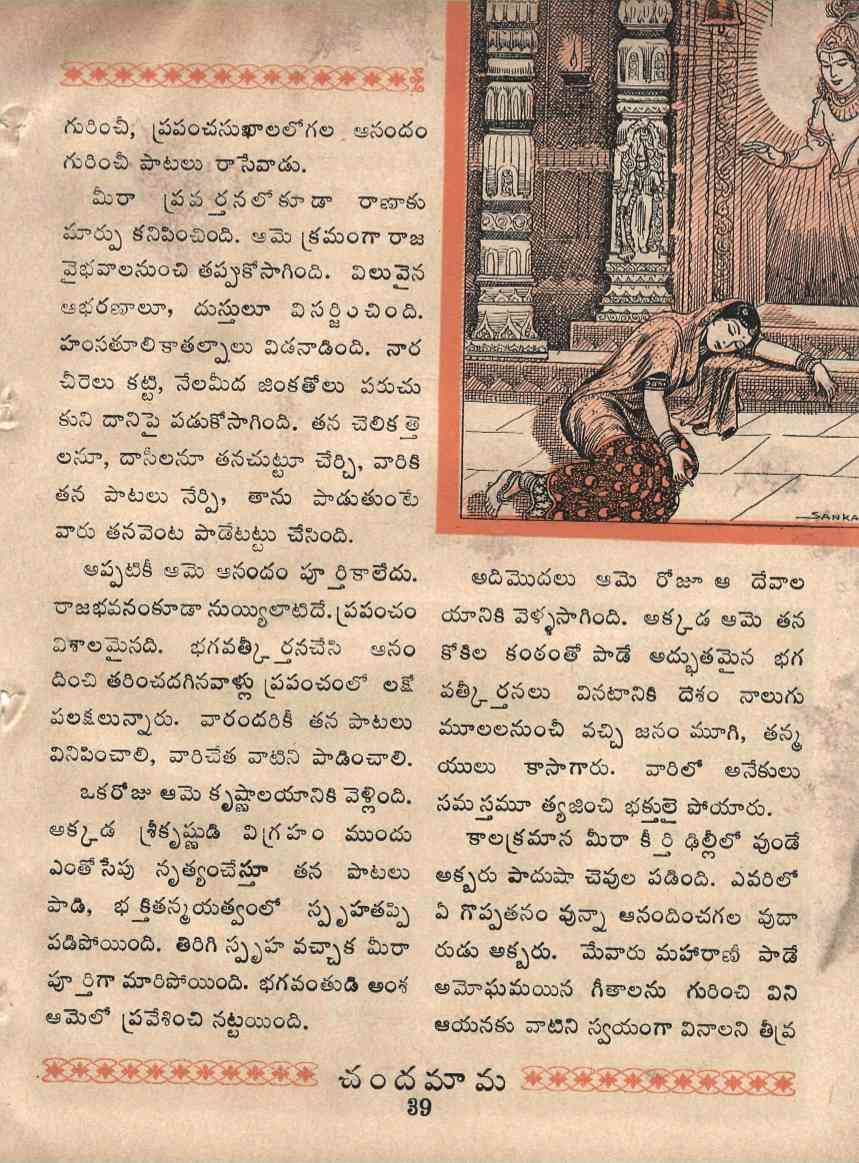 గురించీ, ప్రపంచసుఖాలలోగల ఆనందం
గురించీ పాటలు రాసేవాడు.
మీరా ప్రవర్తనలోకూడా రాణాకు
మార్పు కనిపించింది. ఆమె క్రమంగా రాజ
వైభవాలనుంచి తప్పుకోసాగింది. విలువైన
ఆభరణాలూ, దుస్తులూ విసర్జించింది.
హంసతూలికాతల్పాలు విడనాడింది. నార
చీరెలు కట్టి, నేలమీద జింకతోలు పరుచు
కుని దానిపై పడుకోసాగింది. తన చెలికత్తె
లనూ, దాసీలనూ తనచుట్టూ చేర్చి, వారికి
తన పాటలు నేర్పి, తాను పాడుతుంటే
వారు తనవెంట పాడేటట్టు చేసింది.
అప్పటికీ ఆమె ఆనందం పూర్తికాలేదు.
రాజభవనంకూడా నుయ్యిలాటిదే. ప్రపంచం
విశాలమైనది. భగవత్కీర్తనచేసి ఆనం
దించి తరించదగినవాళ్లు ప్రపంచంలో లక్షో
పలక్షలున్నారు. వారందరికీ తన పాటలు
వినిపించాలి, వారిచేత వాటిని పాడించాలి.
ఒకరోజు ఆమె కృష్ణాలయానికి వెళ్లింది.
అక్కడ శ్రీకృష్ణుడి విగ్రహం ముందు
ఎంతోసేపు నృత్యంచేస్తూ తన పాటలు
పాడి, భక్తితన్మయత్వంలో స్పృహతప్పి
పడిపోయింది. తిరిగి స్పృహ వచ్చాక మీరా
పూర్తిగా మారిపోయింది. భగవంతుడి అంశ
ఆమెలో ప్రవేశించి నట్టయింది.
SANKA
అదిమొదలు ఆమె రోజూ ఆ దేవాల
యానికి వెళ్ళసాగింది. అక్కడ ఆమె తన
కోకిల కంఠంతో పాడే అద్భుతమైన భగ
వత్కీర్తనలు వినటానికి దేశం నాలుగు
మూలలనుంచీ వచ్చి జనం మూగి, తన్మ
యులు కాసాగారు. వారిలో అనేకులు
సమస్తమూ త్యజించి భక్తులై పోయారు.
కాలక్రమాన మీరా కీర్తి ఢిల్లీలో వుండే
అక్బరు పాదుషా చెవుల పడింది. ఎవరిలో
ఏ గొప్పతనం వున్నా ఆనందించగల వుదా
రుడు అక్బరు. మేవారు మహారాణీ పాడే
అమోఘమయిన గీతాలను గురించి విని
ఆయనకు వాటిని స్వయంగా వినాలని తీవ్ర
చందమామ
39